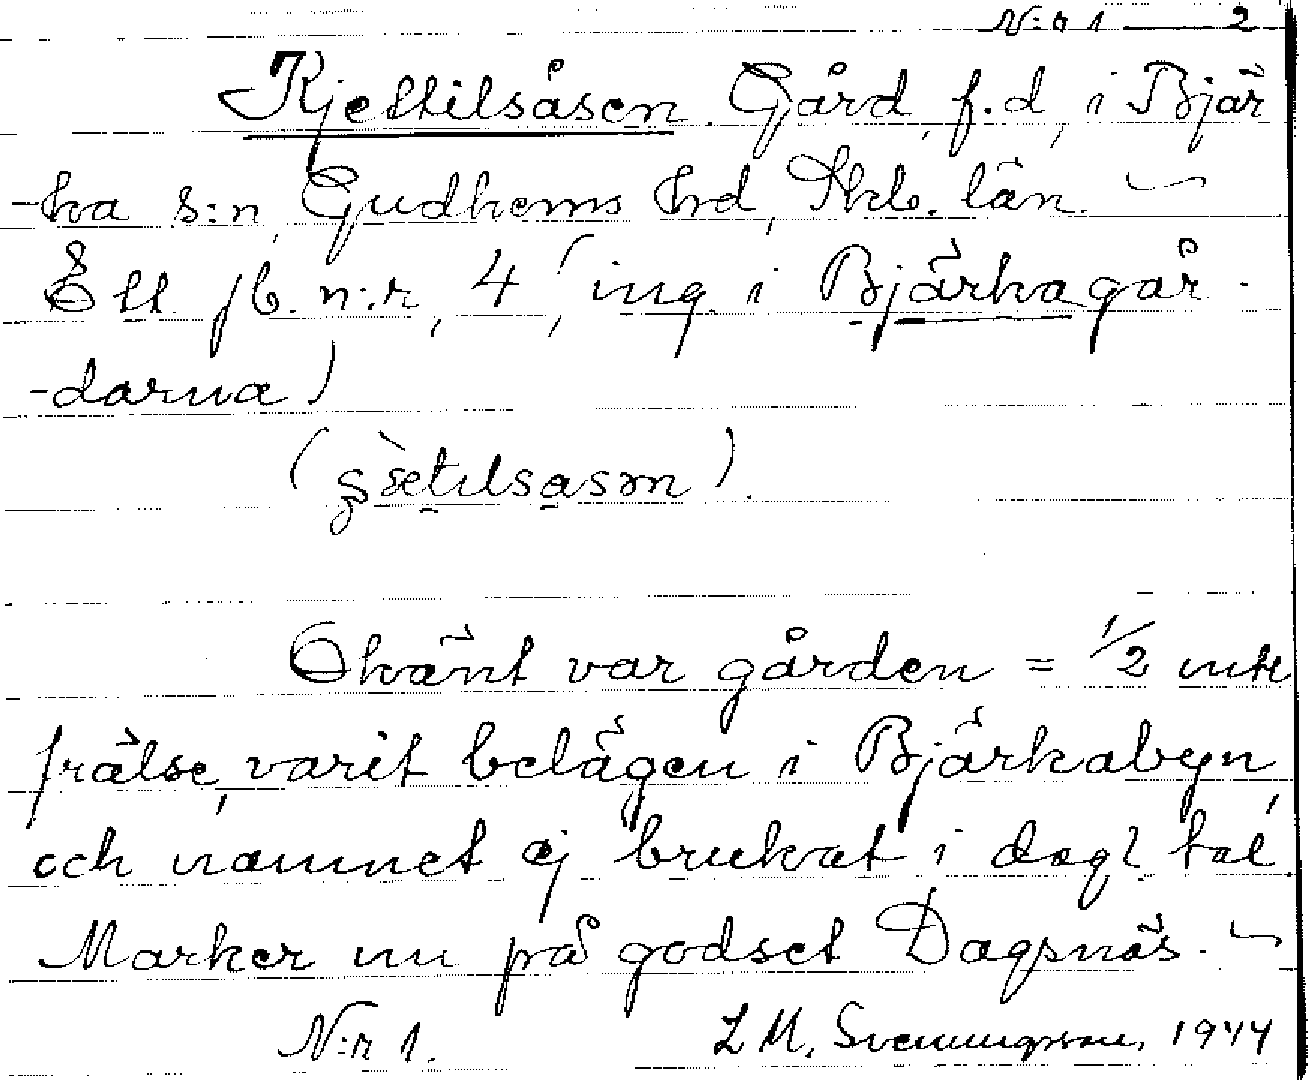 N:o 1 — 2
Kjettilsåsen. Gård, f.d, i Bjär
-ka s:n, Gudhems hrd, Skb. län.
Ett jb. n:r, 4, (ing. i Bjärkagår-
-darna)
(
Okänt var gården = 1/2 inte
frälse, varit belägen i Bjärkabyn,
och namnet ej brukat i dagl. tal.
Marker nu på godset Dagsnäs.
N:r 1. L M, Svenungsson, 1944